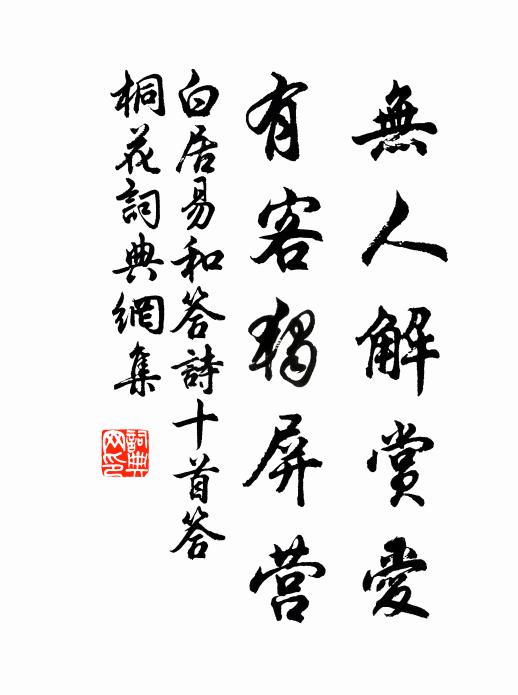 無人解賞愛
有客獨屏营
白居易和答詩十首答
桐花詞典網集
詞典网印